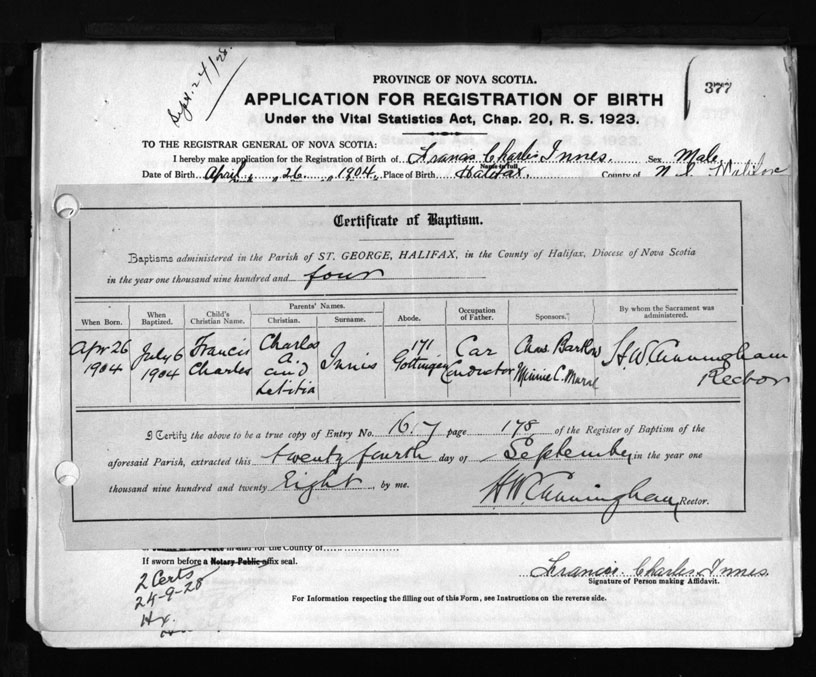 Sept. 24/28.
377
PROVINCE OF NOVA SCOTIA.
APPLICATION FOR REGISTRATION OF BIRTH
Under the Vital Statistics Act, Chap. 20, R. S. 1923.
TO THE REGISTRAR GENERAL OF NOVA SCOTIA:
I hereby make application for the Registration of Birth of Francis Charles Innes. Sex Male
Name in full
Date of Birth April 26 1904, Place of Birth Halifax. County of N. S.
Certificate of Baptism.
Baptisms administered in the Parish of ST. GEORGE, HALIFAX, in the County of Halifax, Diocese of Nova Scotia
in the year one thousand nine hundred and four
When Born. When Baptized. Child's Christian Name. Parents' Names. Christian. Surname. Abode. Occupation of Father. Sponsors. By whom the Sacrament was administered.
Apr 26 1904 July 6 1904 Francis Charles Charles and Letitia Innis 171 Gottingen Car Conductor Chas. Barlow Minnie C. H. W. Cunningham Rector
I Certify the above to be a true copy of Entry No. 167 page 178 of the Register of Baptism of the
aforesaid Parish, extracted this twenty fourth day of September in the year one
thousand nine hundred and twenty Eight, by me. H W. Cunningham Rector.
in and for the County of
If sworn before a Notary Public affix seal.
Francis Charles Innes
Signature of Person making Affidavit.
2 Certs
24-9-28
Hx.
For Information respecting the filling out of this Form, see Instructions on the reverse side.